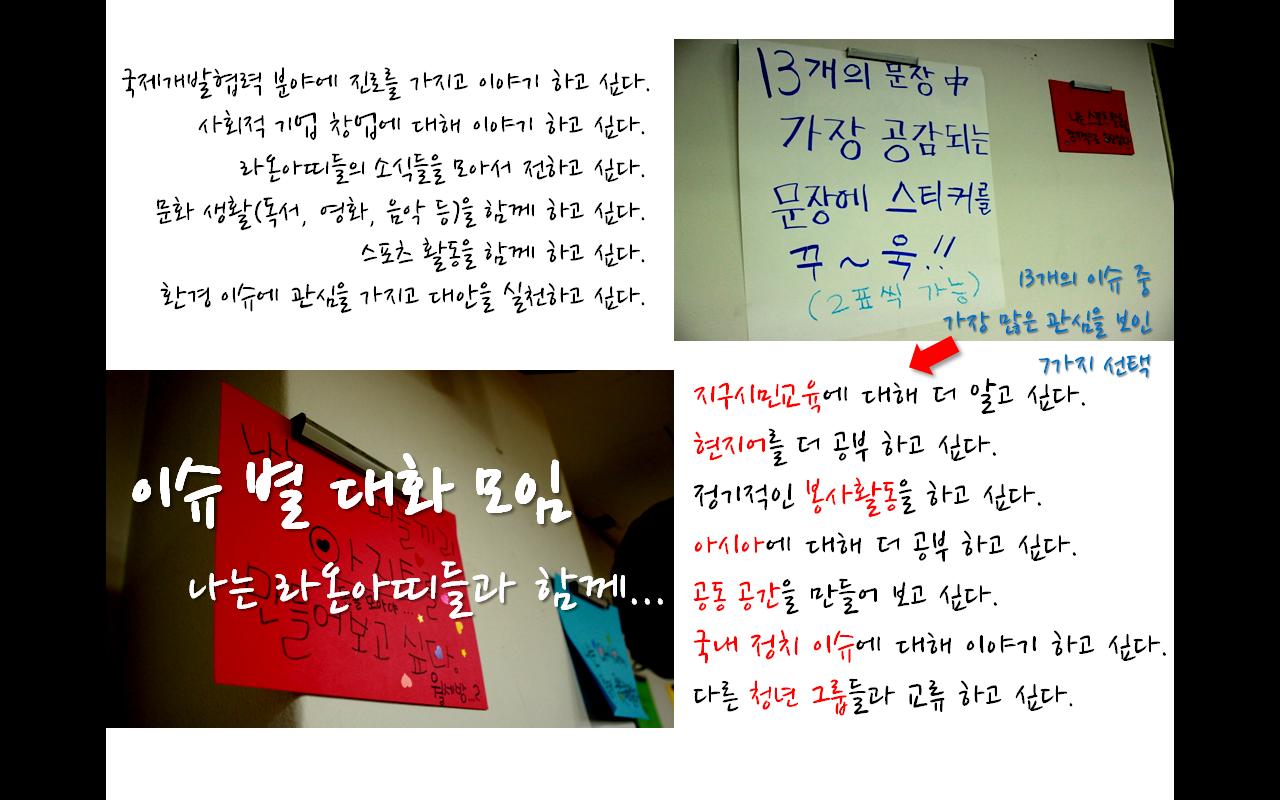 국제개발협력 분야에 진로를 가지고 이야기 하고 싶다.
사회적 기업 창업에 대해 이야기 하고 싶다.
라온아띠들의 소식들을 모아서 전하고 싶다.
문화 생활(독서, 영화, 음악 등)을 함께 하고 싶다.
스포츠 활동을 함께 하고 싶다.
환경 이슈에 관심을 가지고 대안을 실천하고 싶다.
13개의 문장 中
가장 공감되는
문장에 스티커를
꾸~욱!!
(2표씩 가능)
13개의 이슈 중
가장 많은 관심을 보인
7가지 선택
이슈 별 대화 모임
나는 라온아띠들과 함께...
만들어보고 싶다.
지구시민교육에 대해 더 알고 싶다.
현지어를 더 공부 하고 싶다.
정기적인 봉사활동을 하고 싶다.
아시아에 대해 더 공부 하고 싶다.
공동 공간을 만들어 보고 싶다.
국내 정치 이슈에 대해 이야기 하고 싶다.
다른 청년 그룹들과 교류 하고 싶다.